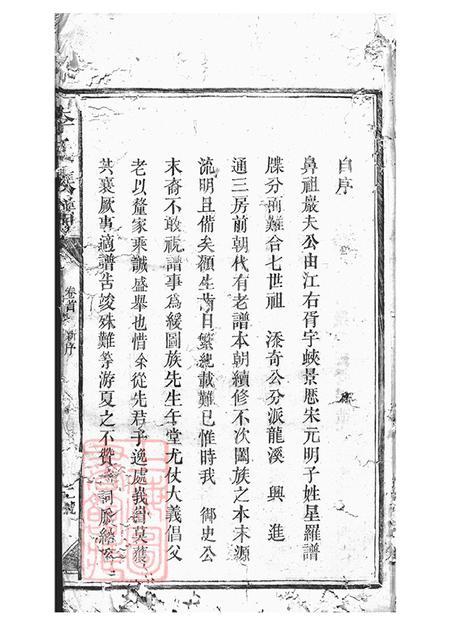 自序
鼻祖嚴夫公由江右胥宇峽景歷宋元明子姓星羅譜
牒分而難合七世祖 深奇公分派龍溪 興 進
通三房前朝代有老譜本朝續修不次闔族之本末源
流明且備矣顧生齒日繁紀載難已惟時我 御史公
末裔不敢視譜事為緩圖族先生午堂尤仗大義倡父
老以釐家乘誠盛舉也惜余從先君子逸處義莫獲
共襄厥事適譜告竣殊難等游夏之不贊一詞脈絡
卷首 新序